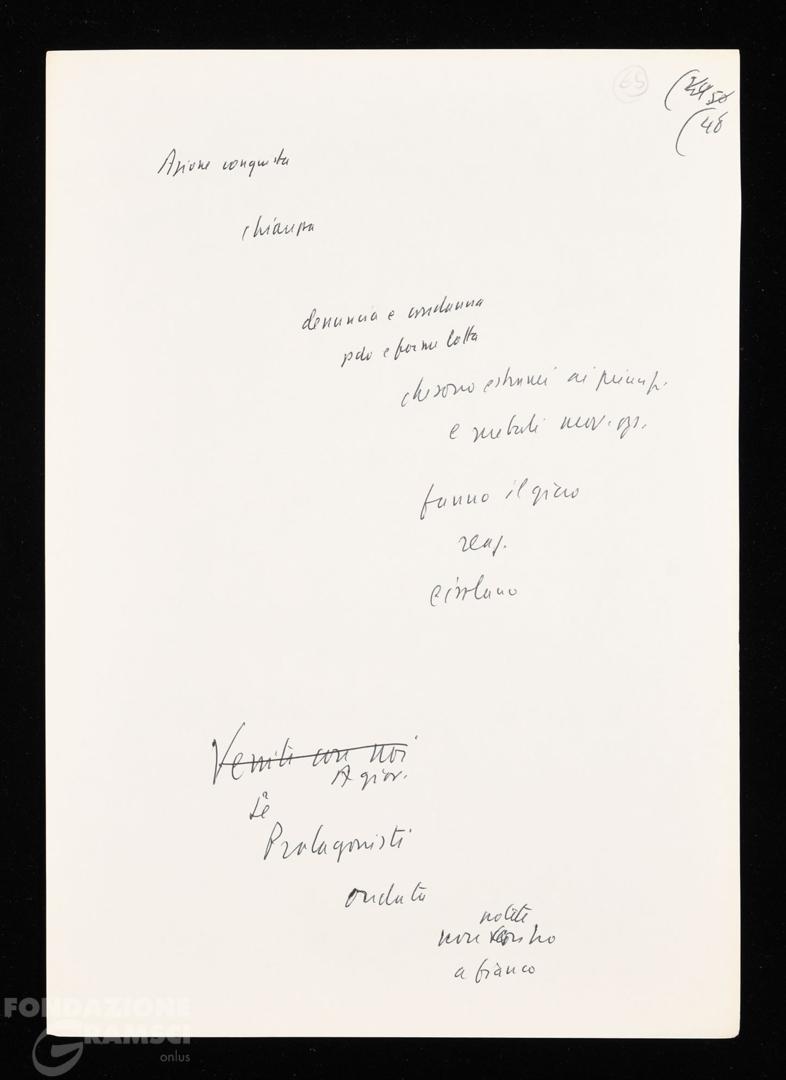 65
50
(48
Azione conquista
chiarezza
denuncia e condanna
pdo e forme lotta
che sono estranei ai princip.
e metodi mov. op.
fanno il gioco
reaz.
e isolano
Venite con noi
A giov.
Protagonisti
ondata
noi
a fianco
FONDAZIONE
GRAMSCI
onlus